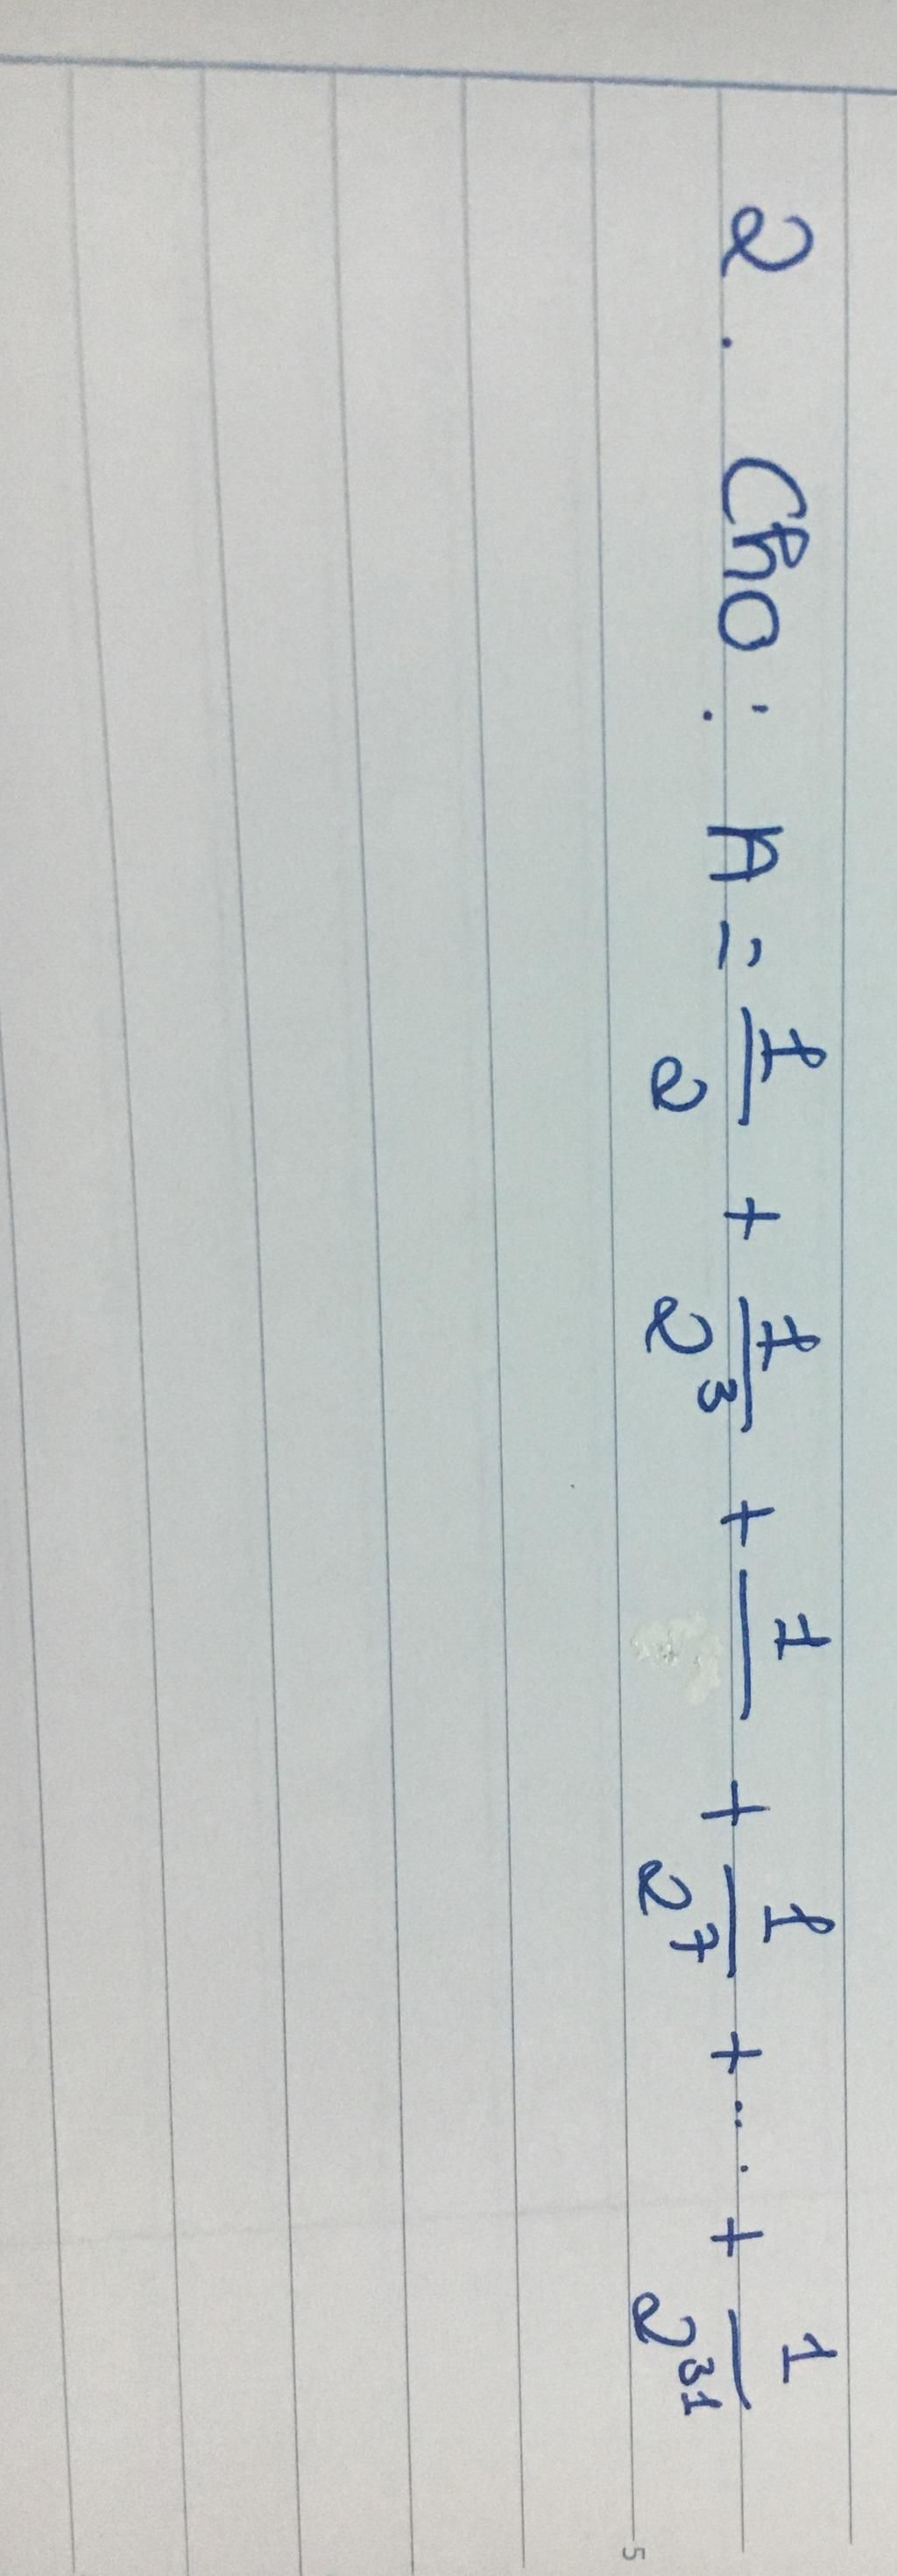 2. Cho: A = 1/2 + 1/2³ + 1/ + 1/2⁷ + ... + 1/2³¹
5